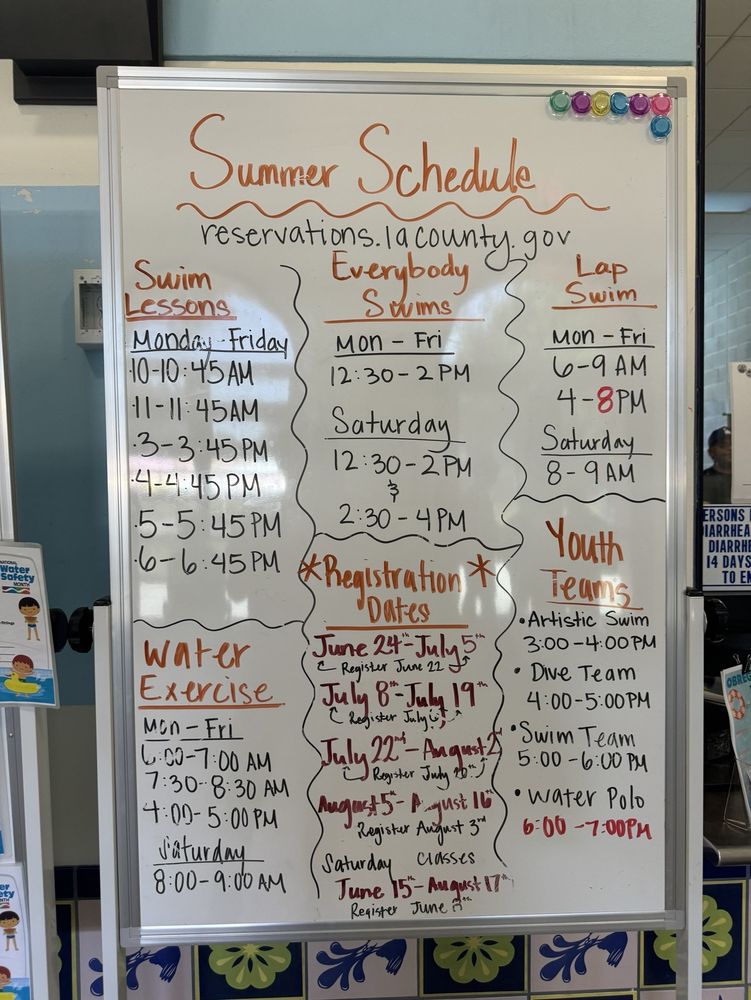 Summer Schedule
reservations.lacounty.gov
Swim
Lessons
Monday-Friday
·10-10:45AM
·11-11:45AM
·3-3:45PM
·4-4:45PM
·5-5:45PM
·6-6:45PM
Everybody
Swims
Mon - Fri
12:30-2PM
Saturday
12:30-2PM
&
2:30-4PM
Lap
Swim
Mon - Fri
6-9AM
4-8PM
Saturday
8-9AM
Water
Exercise
Mon - Fri
6:00-7:00AM
7:30-8:30AM
4:00-5:00PM
Saturday
8:00-9:00AM
*Registration*
Dates
June 24th-July 5th
Register June 22
July 8th-July 19th
Register July
July 22nd-August 2
Register July 20th
August 5th-August 16th
Register August 3rd
Saturday Classes
June 15th-August 17th
Register June
Youth
Teams
•Artistic Swim
3:00-4:00PM
•Dive Team
4:00-5:00PM
•Swim Team
5:00-6:00PM
•Water Polo
6:00-7:00PM
Water
Safety
MONTH
ERSONS
DIARRHE
14 DAYS
TO EN